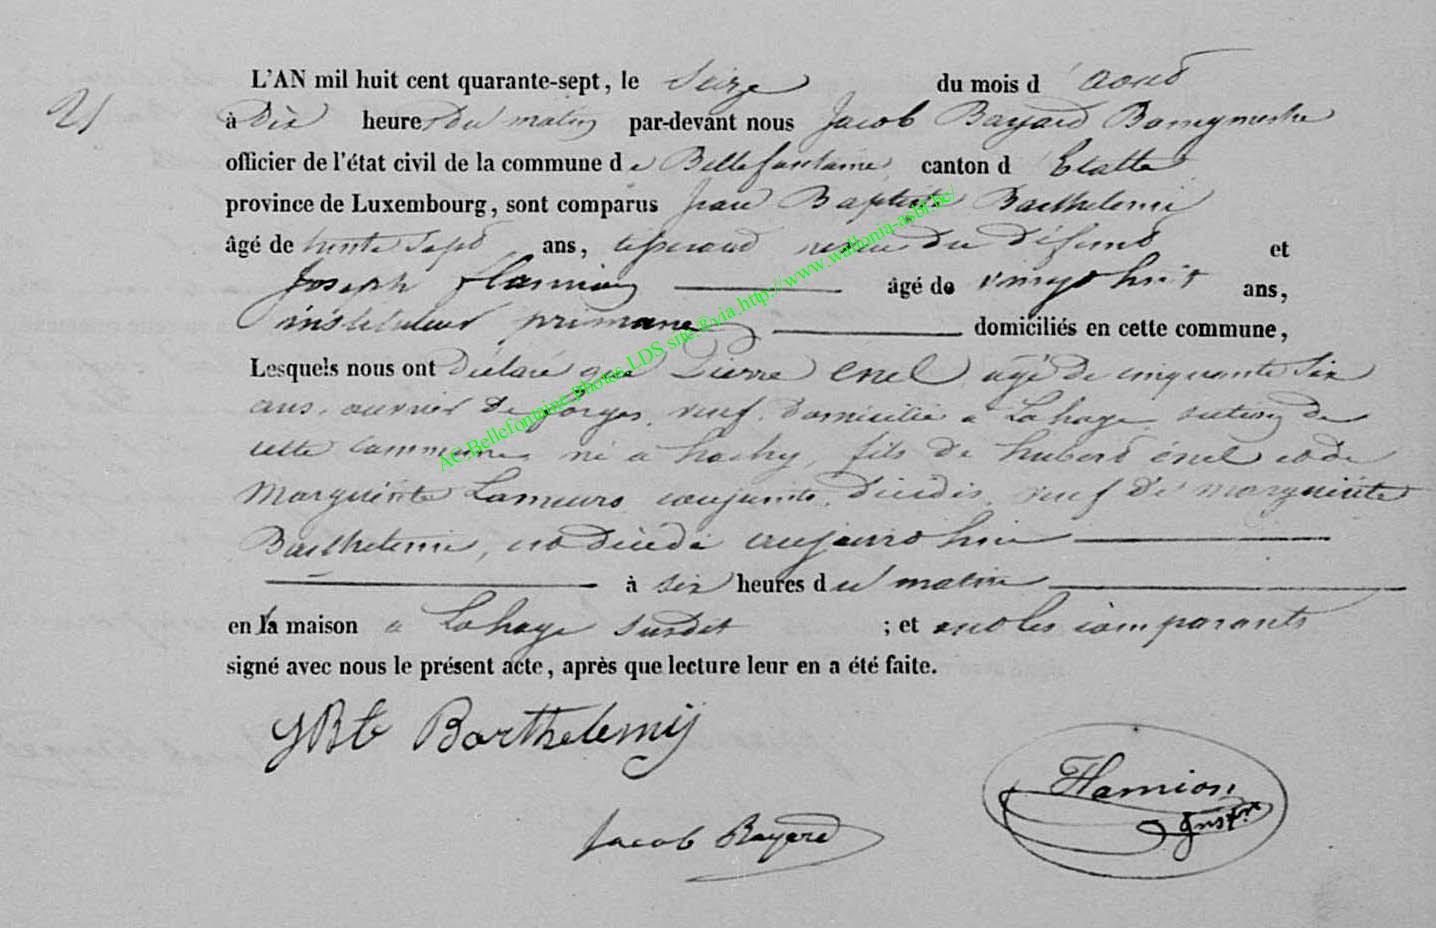 21
L'AN mil huit cent quarante-sept, le Seize du mois d'aout
à Dix heures du matin par-devant nous Jacob Bayard Bourgmestre
officier de l'état civil de la commune de Bellefontaine, canton d'Etalle
province de Luxembourg, sont comparus Jean Baptiste Barthelemi
âgé de trente sept ans, tisserand neveu du défunt et
Joseph Hamion âgé de vingt huit ans,
instituteur primaire domiciliés en cette commune,
Lesquels nous ont déclaré que Pierre Enel âgé de cinquante six
ans, ouvrier de forges, veuf, domicilié a Lahage, section de
cette commune né a hachy, fils de hubert enel et de
Marguerite Lameurs conjoints, décédés, veuf de marguerite
Barthelemi, est décédé aujourd'hui
à six heures du matin
en la maison a Lahage susdit ; et ont les comparants
signé avec nous le présent acte, après que lecture leur en a été faite.
JBte Barthelemy
Hamion,
Instr
Jacob Bayard
AC.Bellefontaine.Photos.LDS site.®via http://www.wallonia-asbl.be/